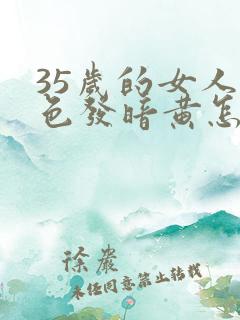 35歲的女人
色發暗黃怎
徐嚴
未經同意禁止轉載